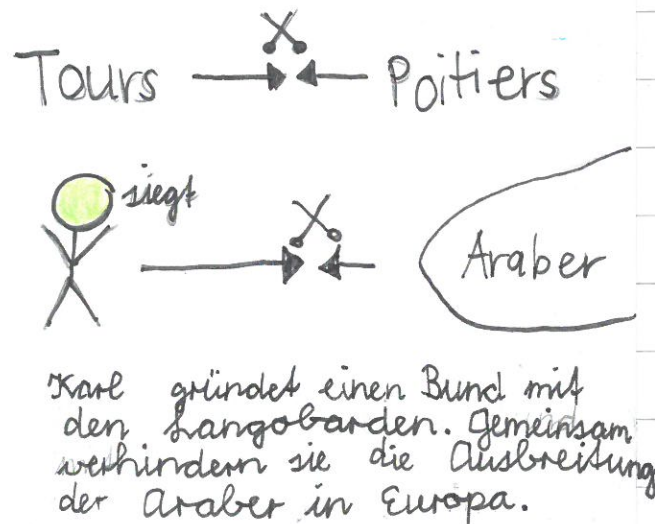 Tours Poitiers
siegt
Araber
Karl gründet einen Bund mit
den Langobarden. Gemeinsam
verhindern sie die Ausbreitung
der Araber in Europa.